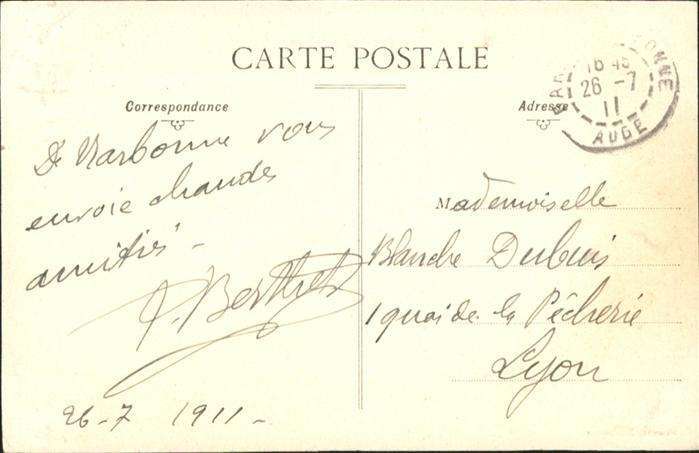 CARTE POSTALE
Correspondance
De Narbonne vous
envoie chaudes
amitiés -
P. Berthet
26-7 1911 -
Adresse
16 45
26 -7
11
AUDE
Mademoiselle
Blanche Dubuis
1 quai de la Pêcherie
Lyon